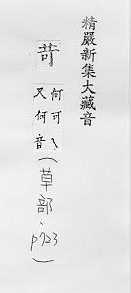 精嚴新集大藏音
苛
何可〻
又何音
(草部、p723)